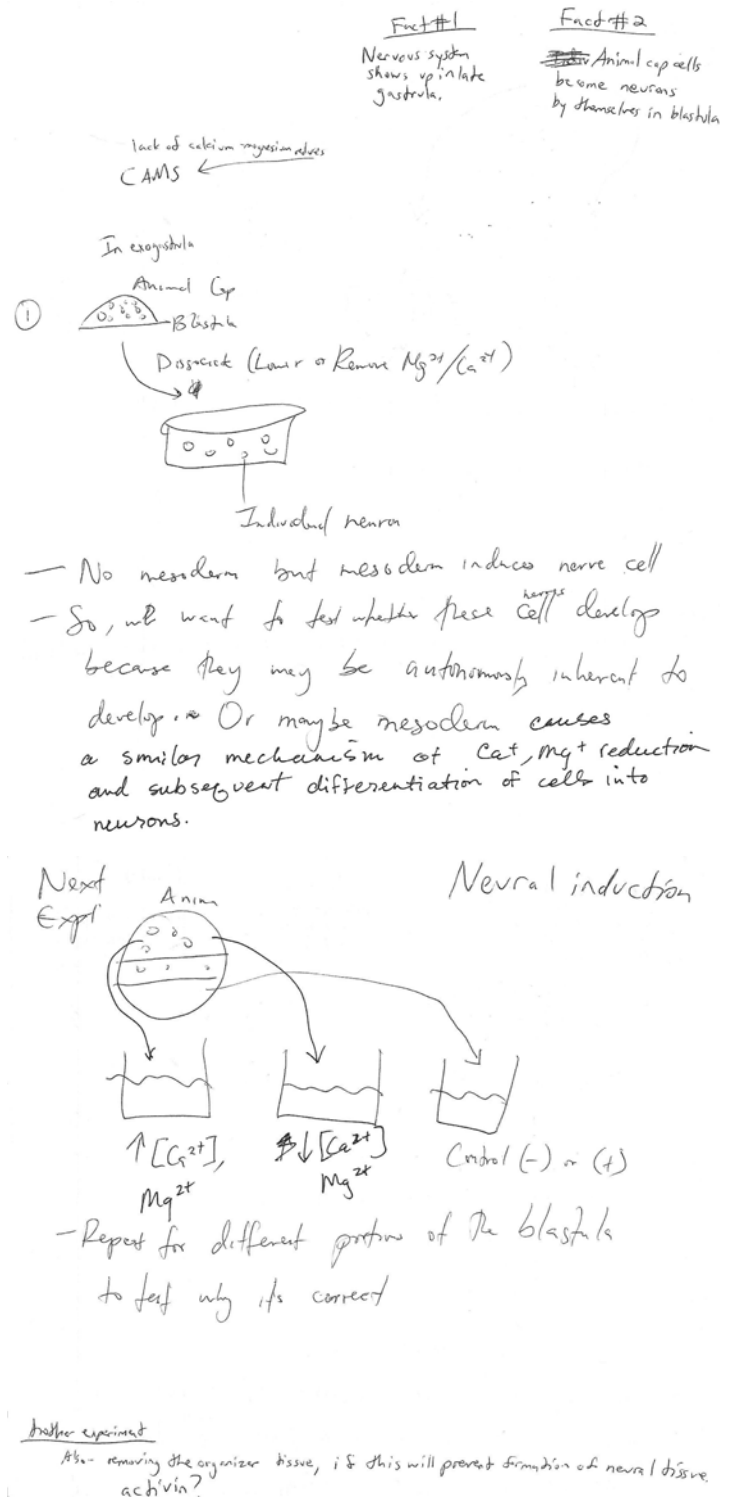 Fact #1
Nervous system
shows up in late
gastrula.
Fact #2
Animal cap cells
become neurons
by themselves in blastula
lack of calcium magnesium
CAMS
In exogastrula
Animal Cap
①
Blastula
Dissociate (Lower or Remove Mg²⁺/Ca²⁺)
Individual neuron
— No mesoderm but mesoderm induces nerve cell
— So, we want to test whether these nerve cell develop
because they may be autonomously inherent to
develop. Or maybe mesoderm causes
a similar mechanism of Ca⁺, Mg⁺ reduction
and subsequent differentiation of cells into
neurons.
Next
Expt
Neural induction
Anima
↑ [Ca²⁺],
Mg²⁺
↓ [Ca²⁺]
Mg²⁺
Control (-) or (+)
- Repeat for different portions of the blastula
to test why it's correct
Another experiment
Also - removing the organizer tissue, if this will prevent formation of neural tissue.
activin?